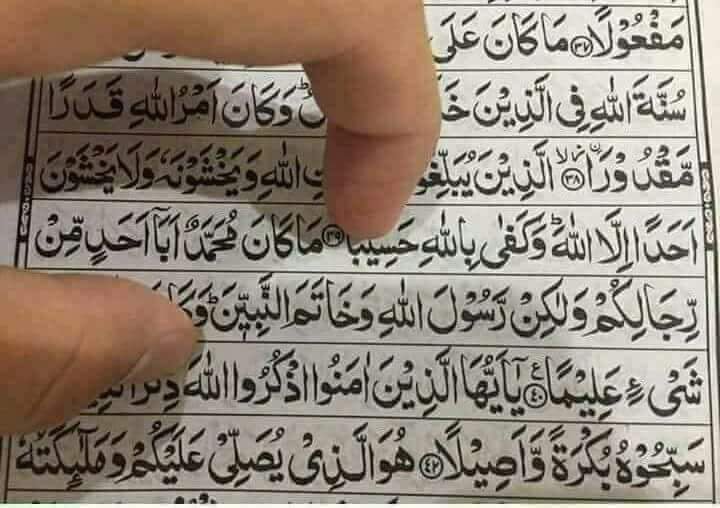 مَفْعُوْلًا ۝۳۷ مَا كَانَ عَلَى
سُنَّةَ اللّٰهِ فِي الَّذِيْنَ وَكَانَ اَمْرُ اللّٰهِ قَدَرًا
مَّقْدُوْرًا ۝۳۸ الَّذِيْنَ اللّٰهِ وَيَخْشَوْنَهٗ وَلَا يَخْشَوْنَ
اَحَدًا اِلَّا اللّٰهَ ؕ وَكَفٰى بِاللّٰهِ حَسِيْبًا ۝۳۹ مَا كَانَ مُحَمَّدٌ اَبَاۤ اَحَدٍ مِّنْ
رِّجَالِكُمْ وَلٰكِنْ رَّسُوْلَ اللّٰهِ وَخَاتَمَ النَّبِيّٖنَ ؕ
شَىْءٍ عَلِيْمًا ۝۴۰ يٰۤاَيُّهَا الَّذِيْنَ اٰمَنُوا اذْكُرُوا اللّٰهَ
سَبِّحُوْهُ بُكْرَةً وَّاَصِيْلًا ۝۴۲ هُوَ الَّذِىْ يُصَلِّىْ عَلَيْكُمْ وَمَلٰٓئِكَتُهٗ